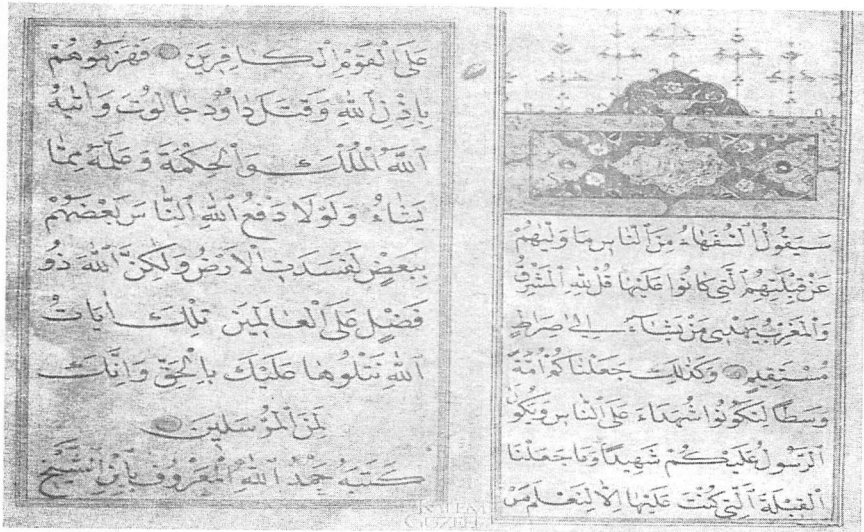 سَيَقُولُ السُّفَهَاءُ مِنَ النَّاسِ مَا وَلّٰيهُمْ
عَنْ قِبْلَتِهِمُ الَّتِي كَانُوا عَلَيْهَا قُلْ لِلّٰهِ الْمَشْرِقُ
وَالْمَغْرِبُ يَهْدِي مَنْ يَشَاءُ اِلٰى صِرَاطٍ
مُسْتَقِيمٍ وَكَذٰلِكَ جَعَلْنَاكُمْ اُمَّةً
وَسَطًا لِتَكُونُوا شُهَدَاءَ عَلَى النَّاسِ وَيَكُونَ
الرَّسُولُ عَلَيْكُمْ شَهِيدًا وَمَا جَعَلْنَا
الْقِبْلَةَ الَّتِي كُنْتَ عَلَيْهَا اِلَّا لِنَعْلَمَ مَنْ
عَلَى الْقَوْمِ الْكَافِرِينَ فَهَزَمُوهُمْ
بِاِذْنِ اللّٰهِ وَقَتَلَ دَاوُدُ جَالُوتَ وَاٰتٰيهُ
اللّٰهُ الْمُلْكَ وَالْحِكْمَةَ وَعَلَّمَهُ مِمَّا
يَشَاءُ وَلَوْلَا دَفْعُ اللّٰهِ النَّاسَ بَعْضَهُمْ
بِبَعْضٍ لَفَسَدَتِ الْاَرْضُ وَلٰكِنَّ اللّٰهَ ذُو
فَضْلٍ عَلَى الْعَالَمِينَ تِلْكَ اٰيَاتُ
اللّٰهِ نَتْلُوهَا عَلَيْكَ بِالْحَقِّ وَاِنَّكَ
لَمِنَ الْمُرْسَلِينَ
كَتَبَهُ حَمْدُ اللّٰهِ الْمَعْرُوفُ بِابْنِ الشَّيْخِ
KALEM
GÜZELİ